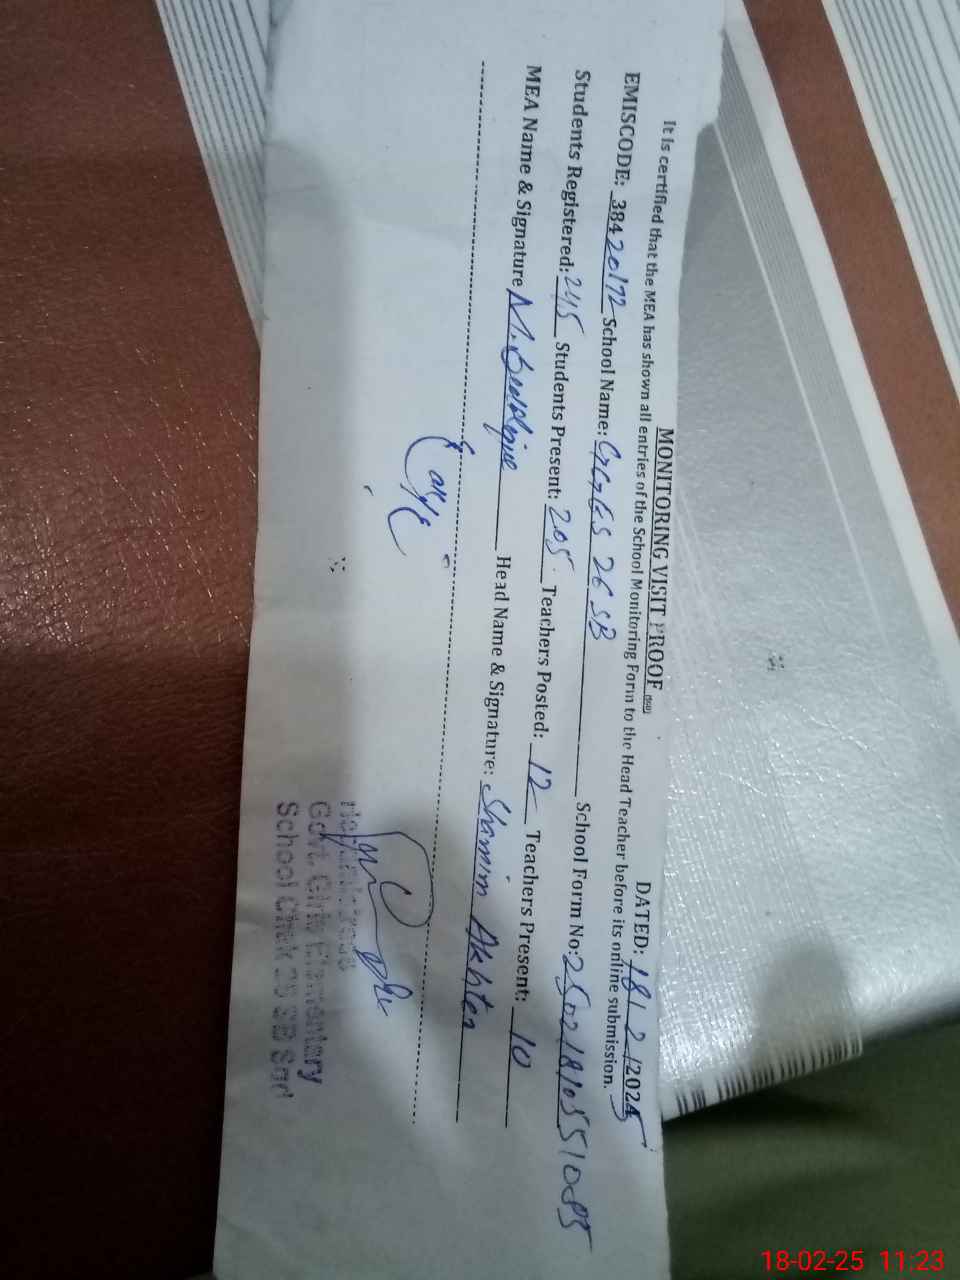 MONITORING VISIT PROOF
DATED: 18/2/2025
It is certified that the MEA has shown all entries of the School Monitoring Form to the Head Teacher before its online submission.
EMISCODE: 38420172 School Name: GGES 26 SB School Form No:
Students Registered: 245 Students Present: 205 Teachers Posted: 12 Teachers Present: 10
MEA Name & Signature Head Name & Signature: Shamim Akhter
Govt. Girls Elementary
School Chak SB Sgd
18-02-25 11:23